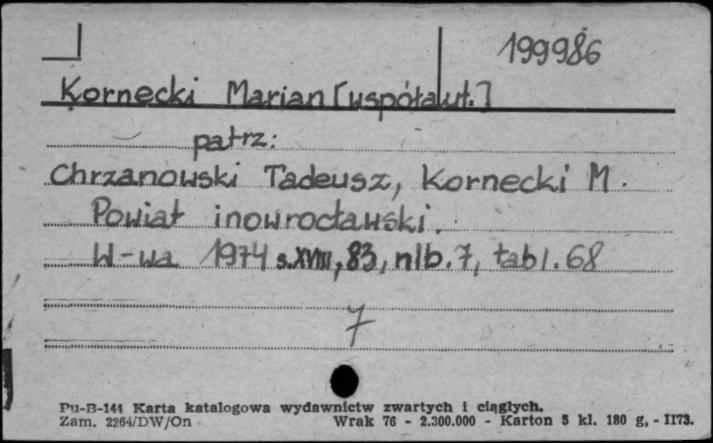 199986
Kornecki Marian [współaut.]
patrz:
Chrzanowski Tadeusz, Kornecki M.
Powiat inowrocławski.
W-wa 1974 s.XVIII, 83, nlb.7, tabl.68
7
Pu-B-144 Karta katalogowa wydawnictw zwartych i ciągłych.
Zam. 2264/DW/On Wrak 76 - 2.300.000 - Karton 5 kl. 180 g, - II73.